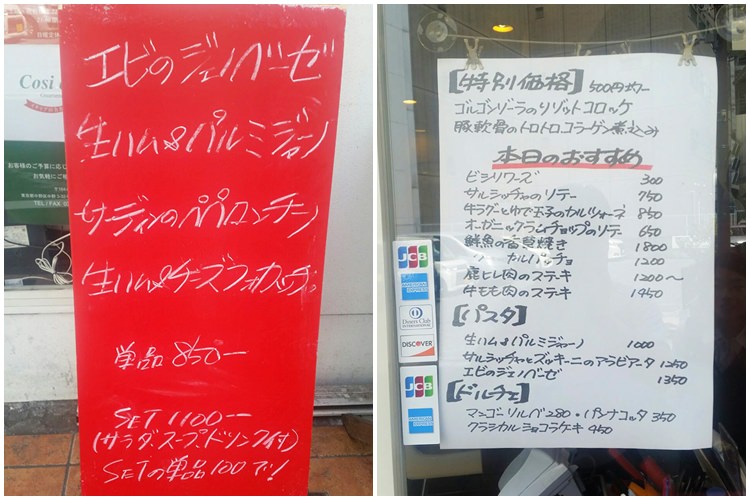 Cosi
お客様のご予算に応じ
お気軽にご
TEL/FAX
エビのジェノベーゼ
生ハム&パルミジャーノ
サーディンのペペロンチーノ
生ハム&チーズフォカッチャ
単品 850ー
SET 1100ー
(サラダスープドリンク付)
SETの単品100アリ!
【特別価格】 500円均一
ゴルゴンゾーラのリゾットコロッケ
豚軟骨のトロトロコラーゲン煮込み
本日のおすすめ
ビシソワーズ 300
サルシッチャのソテー 750
牛ラグーとゆで玉子のカルツォーネ 850
オーガニックラムチョップのソテー 650
鮮魚の香草焼き 1800
カルパッチョ 1200
鹿ヒレ肉のステーキ 1200〜
牛モモ肉のステーキ 1450
【パスタ】
生ハム&パルミジャーノ 1000
サルシッチャとズッキーニのアラビアータ 1250
エビのジェノベーゼ 1350
【ドルチェ】
マンゴーソルベ 280・パンナコッタ 350
クラシカルショコラケーキ 450
JCB
AMERICAN EXPRESS
Diners Club
INTERNATIONAL
DISCOVER
JCB
AMERICAN EXPRESS